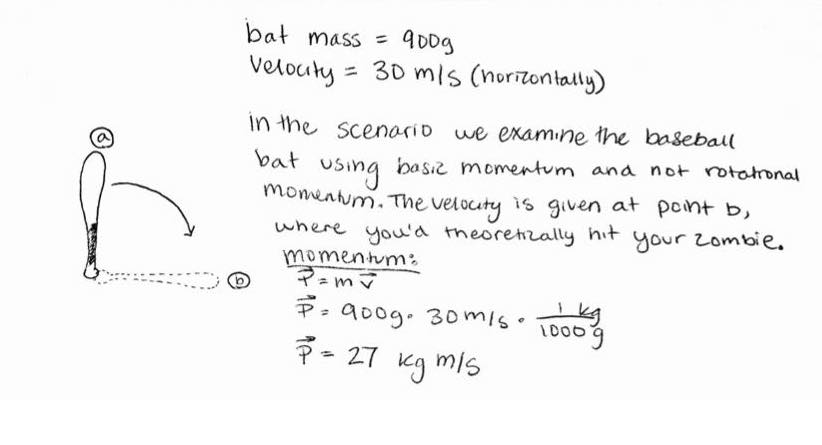 bat mass = 900g
Velocity = 30 m/s (horizontally)
in the scenario we examine the baseball
bat using basic momentum and not rotational
momentum. The velocity is given at point b,
where you'd theoretically hit your zombie.
momentum:
P⃗ = m v⃗
P⃗ = 900g · 30m/s · 1 kg / 1000 g
P⃗ = 27 kg m/s
a
b